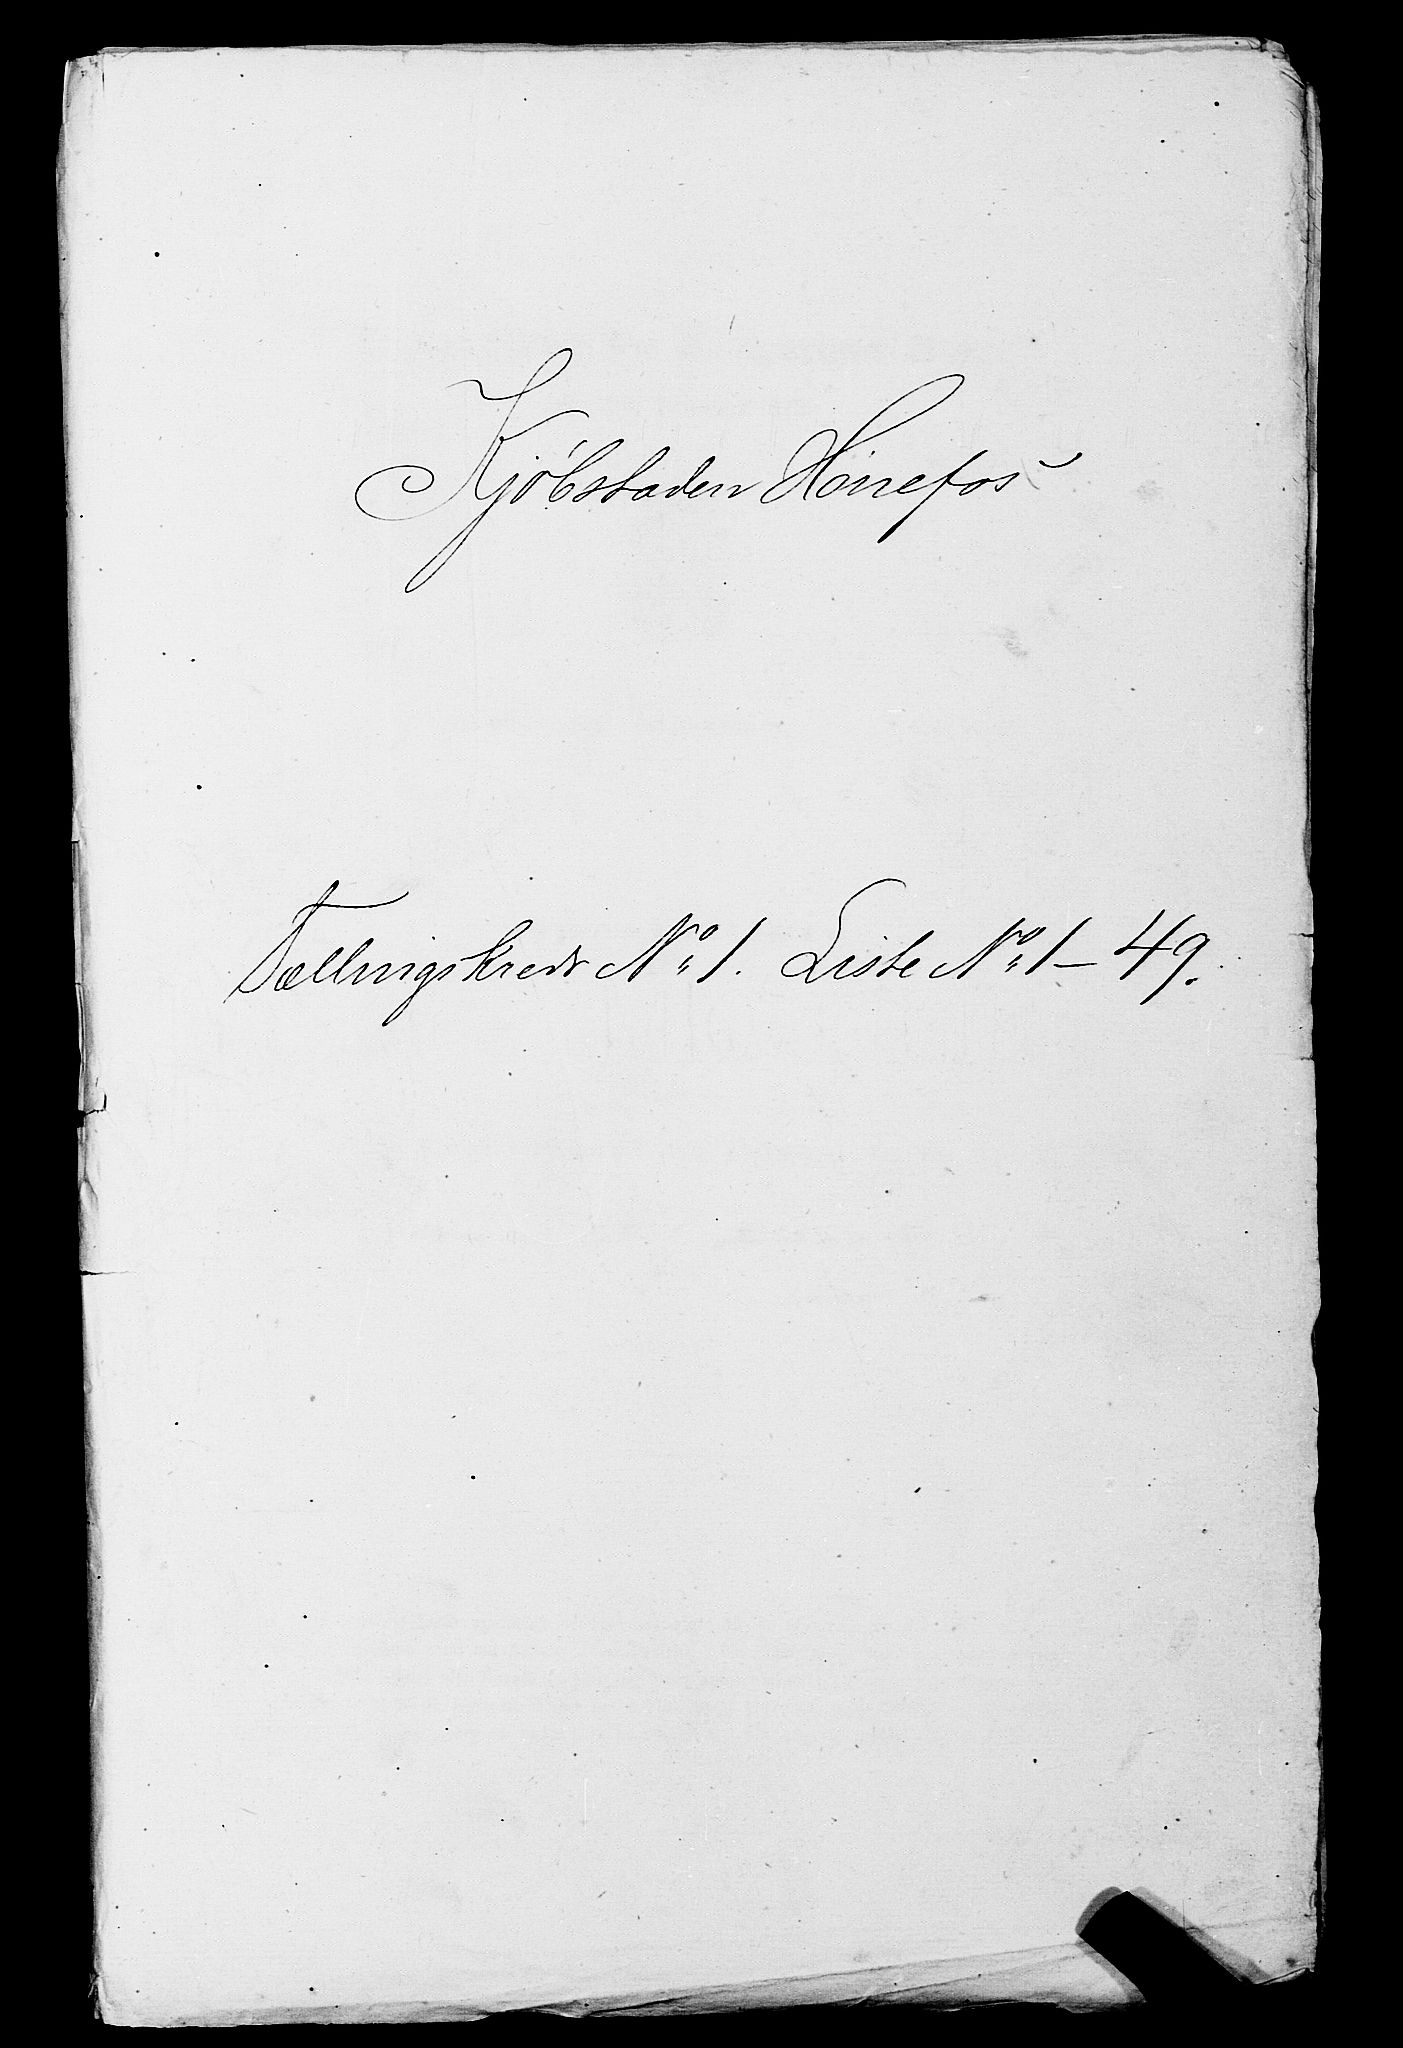 Kjöbstaden Hönefos
Tællingskreds No 1. Liste No 1 – 49.